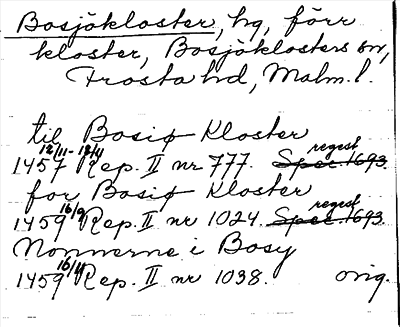 Bosjökloster, hg, förr
kloster, Bosjöklosters sn,
Frosta hd, Malm. l.
til Bosiø Kloster
1457 12/11 - 18/11 Rep. II nr 777. Spec. 1693. regest
for Bosiø Kloster
1459 16/9 Rep. II nr 1024. Spec. 1693. regest
Nonnerne i Bosy
1459 16/11 Rep. II nr 1038. orig.